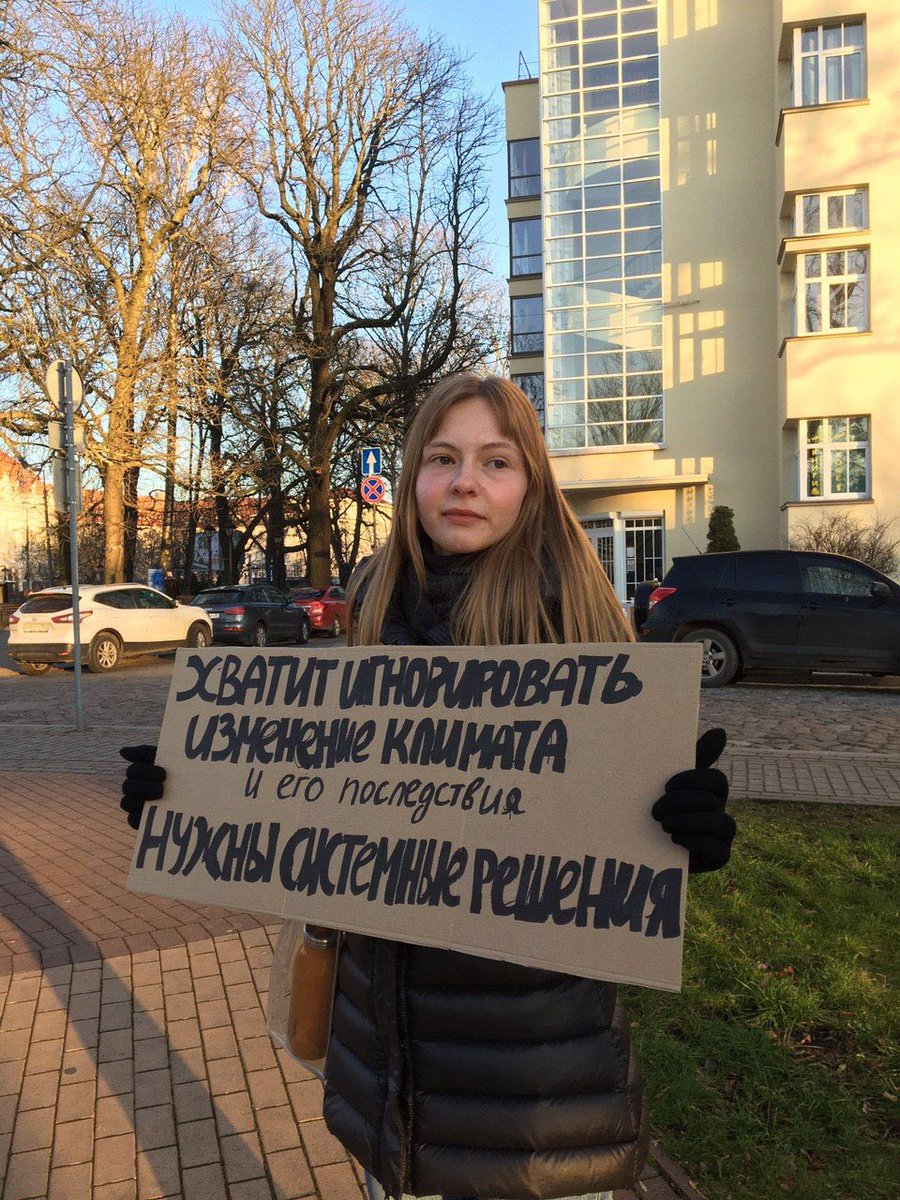 ХВАТИТ ИГНОРИРОВАТЬ
ИЗМЕНЕНИЕ КЛИМАТА
И ЕГО ПОСЛЕДСТВИЯ
НУЖНЫ СИСТЕМНЫЕ РЕШЕНИЯ